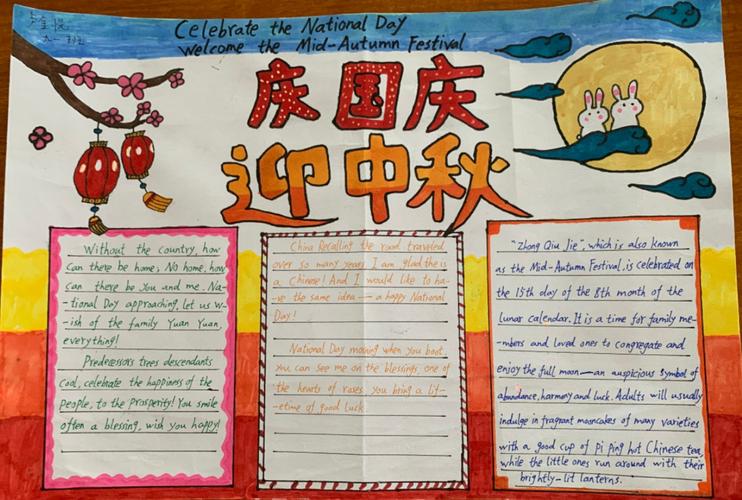 Celebrate the National Day
Welcome the Mid-Autumn Festival
庆国庆
迎中秋
Without the country, how
can there be home, No home, how
can there be you and me. Na-
-tional Day approaching, let us w-
-ish of the family Yuan Yuan,
everything!
Predecessors trees descendants
Cool, celebrate the happiness of the
people, to the prosperity! You smile
often a blessing, wish you happy!
China Recalling the road traveled
over so many years I am glad the is
a Chinese! And I would like to ha-
-ve the same idea — a happy National
Day!
National Day morning when you boot,
you can see me on the blessings, one of
the hearts of roses you bring a lif-
-etime of good luck
"Zhong Qiu Jie", which is also known
as the Mid-Autumn Festival, is celebrated on
the 15th day of the 8th month of the
lunar calendar. It is a time for family me-
-mbers and loved ones to congregate and
enjoy the full moon — an auspicious symbol of
abundance, harmony and luck. Adults will usually
indulge in fragrant mooncakes of many varieties
with a good cup of pi ping hot Chinese tea,
while the little ones run around with their
brightly-lit lanterns.